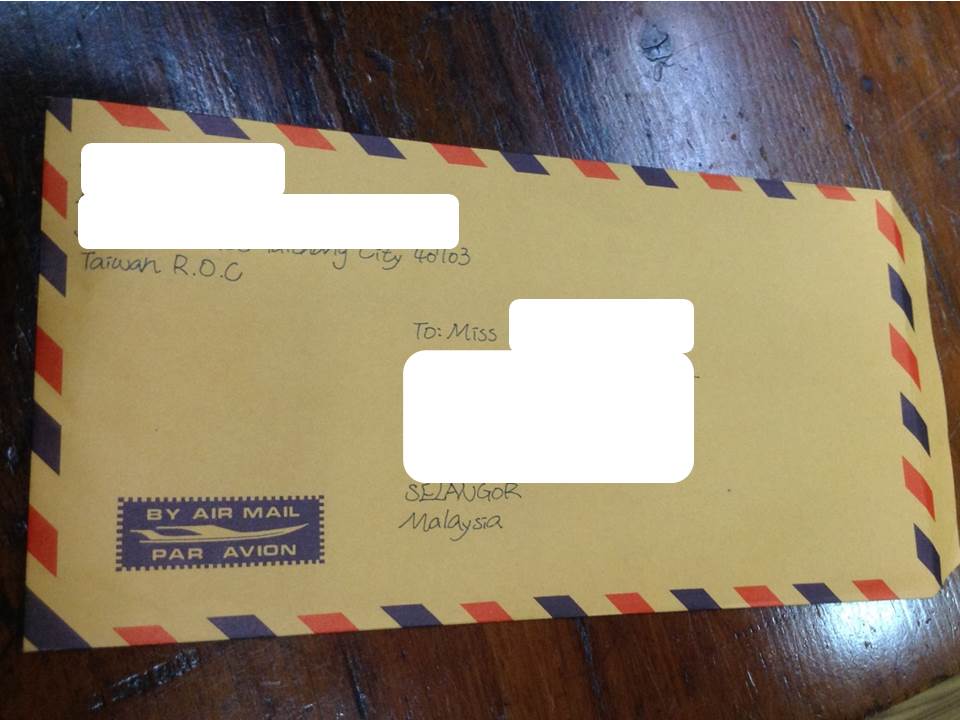 Taichung City 40103
Taiwan R.O.C
To: Miss
SELANGOR
Malaysia
BY AIR MAIL
PAR AVION